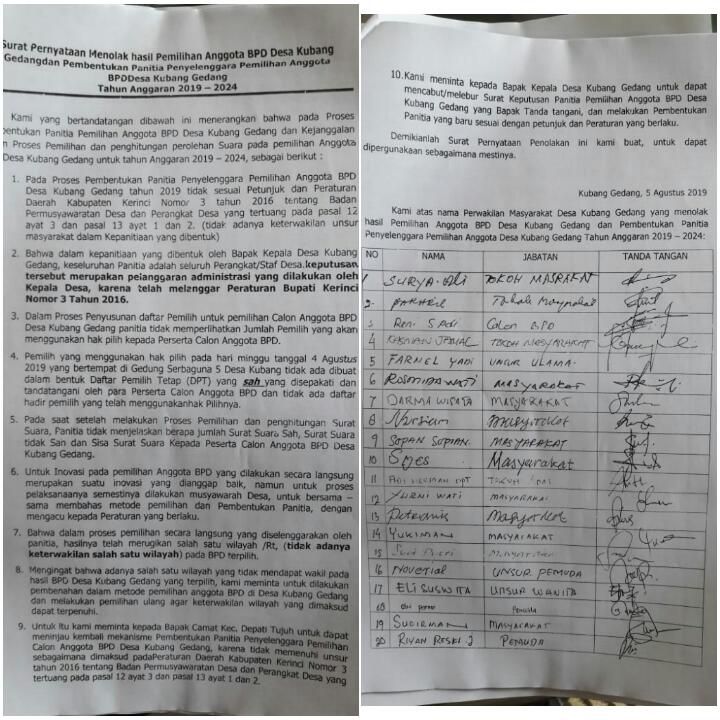 Surat Pernyataan Menolak hasil Pemilihan Anggota BPD Desa Kubang
Gedangdan Pembentukan Panitia Penyelenggara Pemilihan Anggota
BPDDesa Kubang Gedang
Tahun Anggaran 2019 – 2024
Kami yang bertandatangan dibawah ini menerangkan bahwa pada Proses
pentukan Panitia Pemilihan Anggota BPD Desa Kubang Gedang dan Kejanggalan
n Proses Pemilihan dan penghitungan perolehan Suara pada pemilihan Anggota
Desa Kubang Gedang untuk tahun Anggaran 2019 – 2024, sebagai berikut :
1. Pada Proses Pembentukan Panitia Penyelenggara Pemilihan Anggota BPD
Desa Kubang Gedang tahun 2019 tidak sesuai Petunjuk dan Peraturan
Daerah Kabupaten Kerinci Nomor 3 tahun 2016 tentang Badan
Permusyawaratan Desa dan Perangkat Desa yang tertuang pada pasal 12
ayat 3 dan pasal 13 ayat 1 dan 2. (tidak adanya keterwakilan unsur
masyarakat dalam Kepanitiaan yang dibentuk)
2. Bahwa dalam kepanitiaan yang dibentuk oleh Bapak Kepala Desa Kubang
Gedang, keseluruhan Panitia adalah seluruh Perangkat/Staf Desa.keputusan
tersebut merupakan pelanggaran administrasi yang dilakukan oleh
Kepala Desa, karena telah melenggar Peraturan Bupati Kerinci
Nomor 3 Tahun 2016.
3. Dalam Proses Penyusunan daftar Pemilih untuk pemilihan Calon Anggota BPD
Desa Kubang Gedang panitia tidak memperlihatkan Jumlah Pemilih yang akan
menggunakan hak pilih kepada Perserta Calon Anggota BPD.
4. Pemilih yang menggunakan hak pilih pada hari minggu tanggal 4 Agustus
2019 yang bertempat di Gedung Serbaguna 5 Desa Kubang tidak ada dibuat
dalam bentuk Daftar Pemilih Tetap (DPT) yang sah yang disepakati dan
tandatangani oleh para Perserta Calon Anggota BPD dan tidak ada daftar
hadir pemilih yang telah menggunakanhak Pilihnya.
5. Pada saat setelah melakukan Proses Pemilihan dan penghitungan Surat
Suara, Panitia tidak menjelaskan berapa jumlah Surat Suara Sah, Surat Suara
tidak San dan Sisa Surat Suara Kepada Peserta Calon Anggota BPD Desa
Kubang Gedang.
6. Untuk Inovasi pada pemilihan Anggota BPD yang dilakukan secara langsung
merupakan suatu inovasi yang dianggap baik, namun untuk proses
pelaksanaanya semestinya dilakukan musyawarah Desa, untuk bersama –
sama membahas metode pemilihan dan Pembentukan Panitia, dengan
mengacu kepada Peraturan yang berlaku.
7. Bahwa dalam proses pemilihan secara langsung yang diselenggarakan oleh
panitia, hasilnya telah merugikan salah satu wilayah /Rt, (tidak adanya
keterwakilan salah satu wilayah) pada BPD terpilih.
8. Mengingat bahwa adanya salah satu wilayah yang tidak mendapat wakil pada
hasil BPD Desa Kubang Gedang yang terpilih, kami meminta untuk dilakukan
pembenahan dalam metode pemilihan anggota BPD di Desa Kubang Gedang
dan melakukan pemilihan ulang agar keterwakilan wilayah yang dimaksud
dapat terpenuhi.
9. Untuk Itu kami meminta kepada Bapak Camat Kec. Depati Tujuh untuk dapat
meninjau kembali mekanisme Pembentukan Panitia Penyelenggara Pemilihan
Calon Anggota BPD Desa Kubang Gedang, karena tidak memenuhi unsur
sebagaimana dimaksud padaPeraturan Daerah Kabupaten Kerinci Nomor 3
tahun 2016 tentang Badan Permusyawaratan Desa dan Perangkat Desa yang
tertuang pada pasal 12 ayat 3 dan pasal 13 ayat 1 dan 2.
10. Kami meminta kepada Bapak Kepala Desa Kubang Gedang untuk dapat
mencabut/melebur Surat Keputusan Panitia Pemilihan Anggota BPD Desa
Kubang Gedang yang Bapak Tanda tangani, dan melakukan Pembentukan
Panitia yang baru sesuai dengan petunjuk dan Peraturan yang berlaku.
Demikianlah Surat Pernyataan Penolakan ini kami buat, untuk dapat
dipergunakan sebagaimana mestinya.
Kubang Gedang, 5 Agustus 2019
Kami atas nama Perwakilan Masyarakat Desa Kubang Gedang yang menolak
hasil Pemilihan Anggota BPD Desa Kubang Gedang dan Pembentukan Panitia
Penyelenggara Pemilihan Anggota Desa Kubang Gedang Tahun Anggaran 2019 – 2024:
NO NAMA JABATAN TANDA TANGAN
1 SURYA. Ali TOKOH MASRAKAT
2. Tokoh Masyarakat
3 Calon BPD
4 TOKOH MASYARAKAT
5 FARNEL YADI UNSUR ULAMA.
6 ROSMIDAWATI MASYARAKAT
7 DARMA WISATA MASYARAKAT
8 Nursiam Masyarakat
9 SOPAN SOPIAN. MASYARAKAT
10 Masyarakat
11
12 YURNI WATI MASYARAKAT
13 Masyarakat
14 YUKIMAN MASYARAKAT
15
16 NOVERIAL UNSUR PEMUDA
17 ELI SUSWITA UNSUR WANITA
18 Pemuda
19 SUDIRMAN MASYARAKAT
20 RIYAN RESKI. J PEMUDA